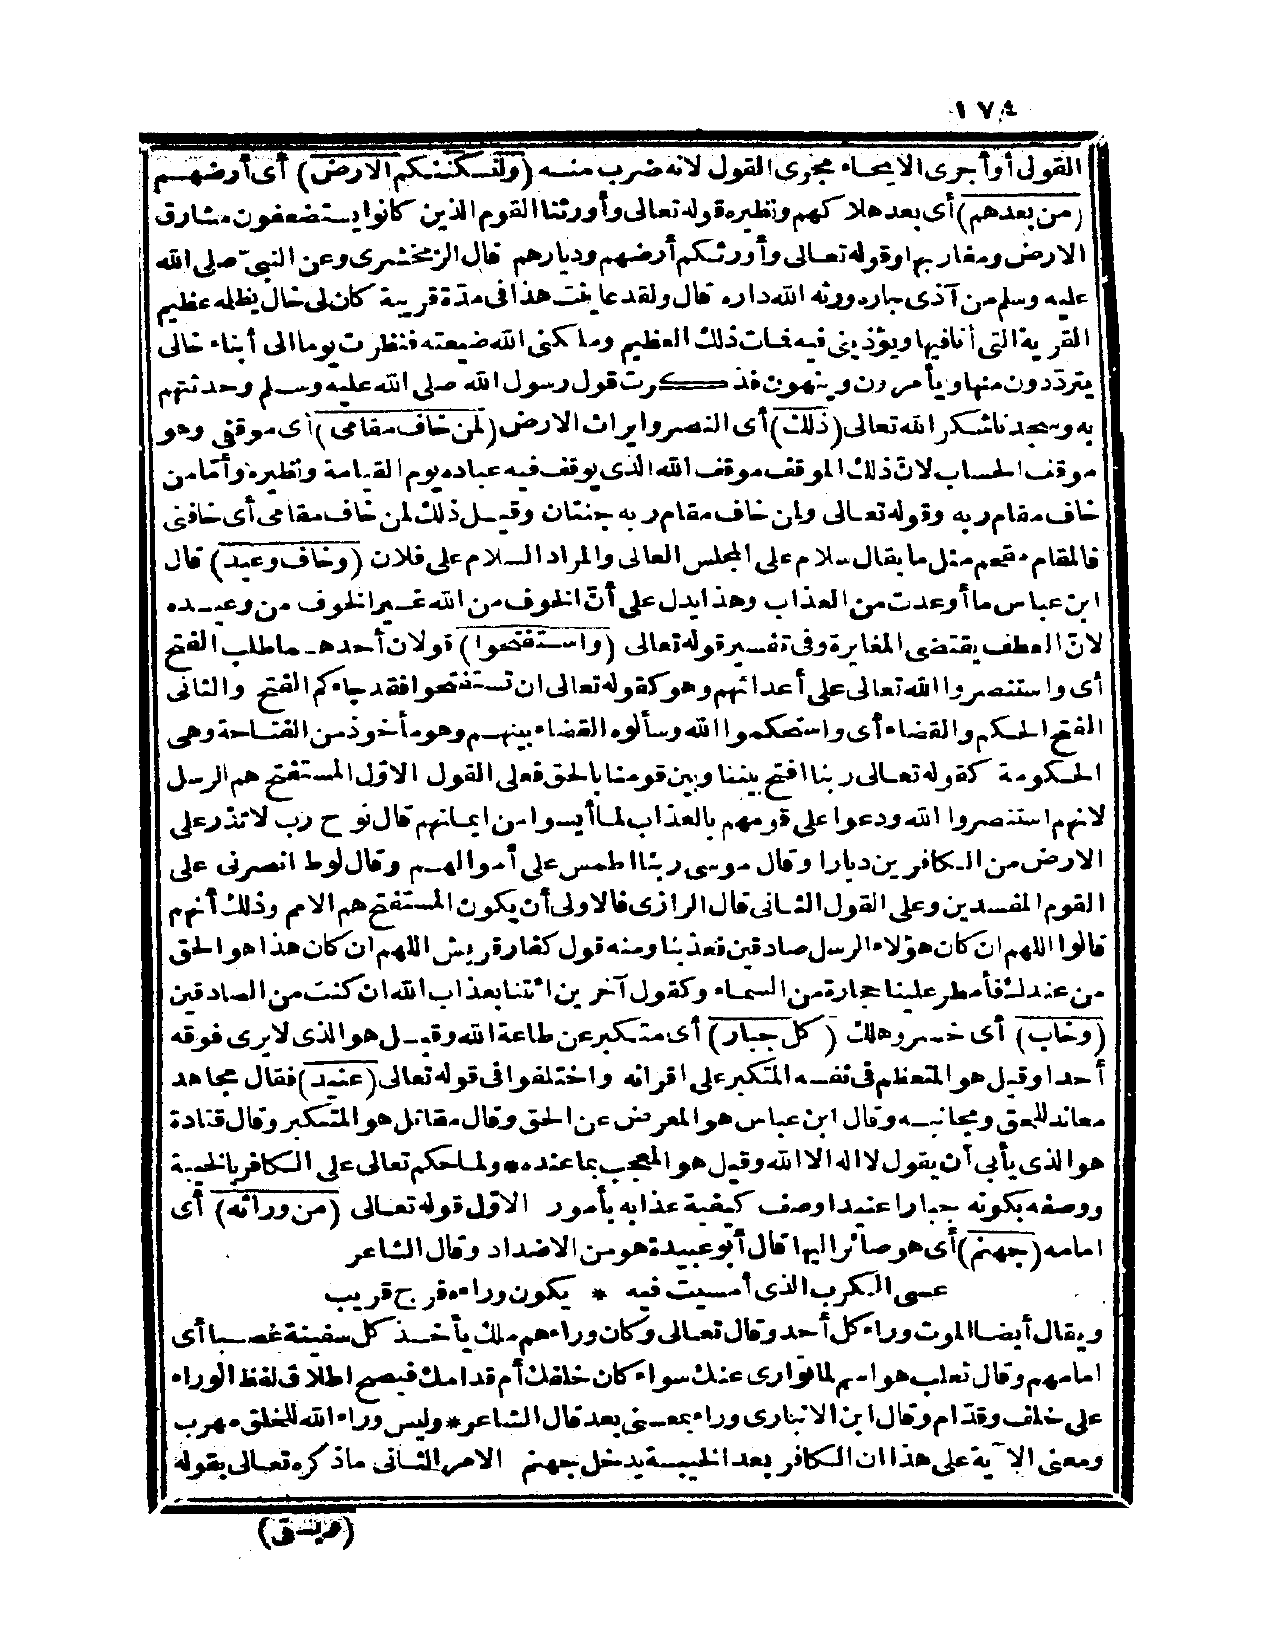 ١٧٤
القول أو أجرى الايحاء مجرى القول لانه ضرب منه (ولنسكننكم الارض) أى أرضهم
(من بعدهم) أى بعد هلاكهم ونظيره قوله تعالى وأورثنا القوم الذين كانوا يستضعفون مشارق
الارض ومغاربها وقوله تعالى وأورثكم أرضهم وديارهم قال الزمخشرى وعن النبىّ صلى الله
عليه وسلم من آذى جاره ورثه الله داره قال ولقد عاينت هذا فى مدّة قريبة كان لى خال يظلمه عظيم
القرية التى أنا فيها ويؤذينى فيه فمات ذلك العظيم وملكنى الله ضيعته فنظرت يوما الى أبناء خالى
يتردّدون منها ويأمرون وينهون فذكرت قول رسول الله صلى الله عليه وسلم وحدثتهم
به وسجدنا شكرا لله تعالى (ذلك) أى النصر وايراث الارض (لمن خاف مقامى) أى موقفى وهو
موقف الحساب لانّ ذلك الموقف موقف الله الذى يوقف فيه عباده يوم القيامة ونظيره وأمّا من
خاف مقام ربه وقوله تعالى ولمن خاف مقام ربه جنتان وقيل ذلك لمن خاف مقامى أى خافنى
فالمقام مقحم مثل ما يقال سلام على المجلس العالى والمراد السلام على فلان (وخاف وعيد) قال
ابن عباس ما أوعدت من العذاب وهذا يدل على أنّ الخوف من الله غير الخوف من وعيده
لانّ العطف يقتضى المغايرة وفى تفسير قوله تعالى (واستفتحوا) قولان أحدهما طلب الفتح
أى واستنصروا الله تعالى على أعدائهم وهو كقوله تعالى ان تستفتحوا فقد جاءكم الفتح والثانى
الفتح الحكم والقضاء أى واستحكموا الله وسألوه القضاء بينهم وهو مأخوذ من الفتاحة وهى
الحكومة كقوله تعالى ربنا افتح بيننا وبين قومنا بالحق فعلى القول الاوّل المستفتح هم الرسل
لانهم استنصروا الله ودعوا على قومهم بالعذاب لما أيسوا من ايمانهم قال نوح رب لا تذر على
الارض من الكافرين ديارا وقال موسى ربنا اطمس على أموالهم وقال لوط انصرنى على
القوم المفسدين وعلى القول الثانى قال الرازى فالاولى أن يكون المستفتح هم الامم وذلك أنهم
قالوا اللهم ان كان هؤلاء الرسل صادقين فعذبنا ومنه قول كفار قريش اللهم ان كان هذا هو الحق
من عندك فأمطر علينا حجارة من السماء وكقول آخرين ائتنا بعذاب الله ان كنت من الصادقين
(وخاب) أى خسر وهلك (كل جبار) أى متكبر عن طاعة الله وقيل هو الذى لا يرى فوقه
أحدا وقيل هو المتعظم فى نفسه المتكبر على اقرانه واختلفوا فى قوله تعالى (عنيد) فقال مجاهد
معاند للحق ومجانبه وقال ابن عباس هو المعرض عن الحق وقال مقاتل هو المتكبر وقال قتادة
هو الذى يأبى أن يقول لا اله الا الله وقيل هو المعجب بما عنده * ولما حكم تعالى على الكافر بالخيبة
ووصفه بكونه جبارا عنيدا وصف كيفية عذابه بأمور الاوّل قوله تعالى (من ورائه) أى
امامه (جهنم) أى هو صائر اليها قال أبو عبيدة هو من الاضداد وقال الشاعر
عسى الكرب الذى أمسيت فيه * يكون وراءه فرج قريب
ويقال أيضا الموت وراء كل أحد وقال تعالى وكان وراءهم ملك يأخذ كل سفينة غصبا أى
امامهم وقال ثعلب هو اسم لما توارى عنك سواء كان خلفك أم قدامك فيصح اطلاق لفظ الوراء
على خلف وقدّام وقال ابن الانبارى وراء بمعنى بعد قال الشاعر * وليس وراء الله للخلق مهرب
ومعنى الآية على هذا ان الكافر بعد الخيبة يدخل جهنم الامر الثانى ماذكره تعالى بقوله
(ويسقى)